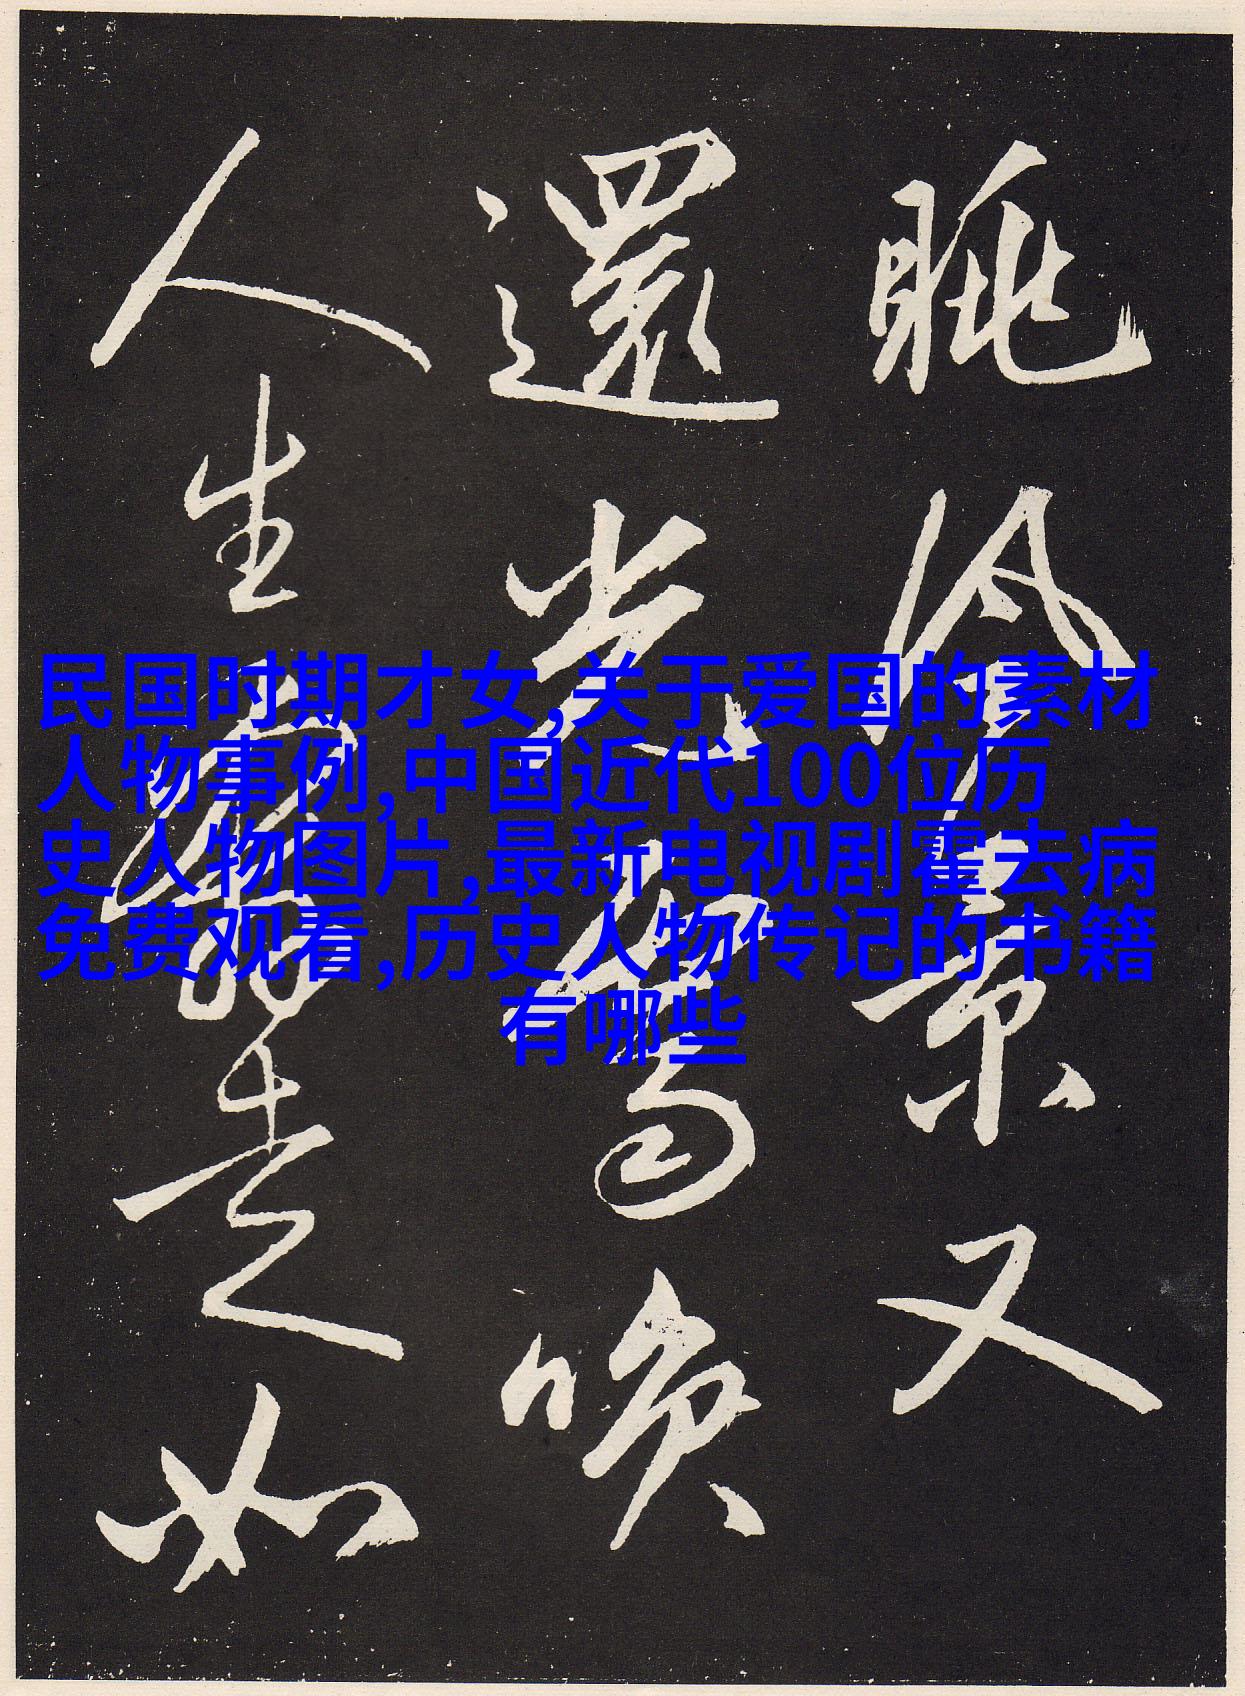 民国时期才女,关于爱国的素材
人物事例,中国近代100位历
史人物图片,最新电视剧霍去病
免费观看,历史人物传记的书籍
有哪些
眺景又
還光喚
人生如